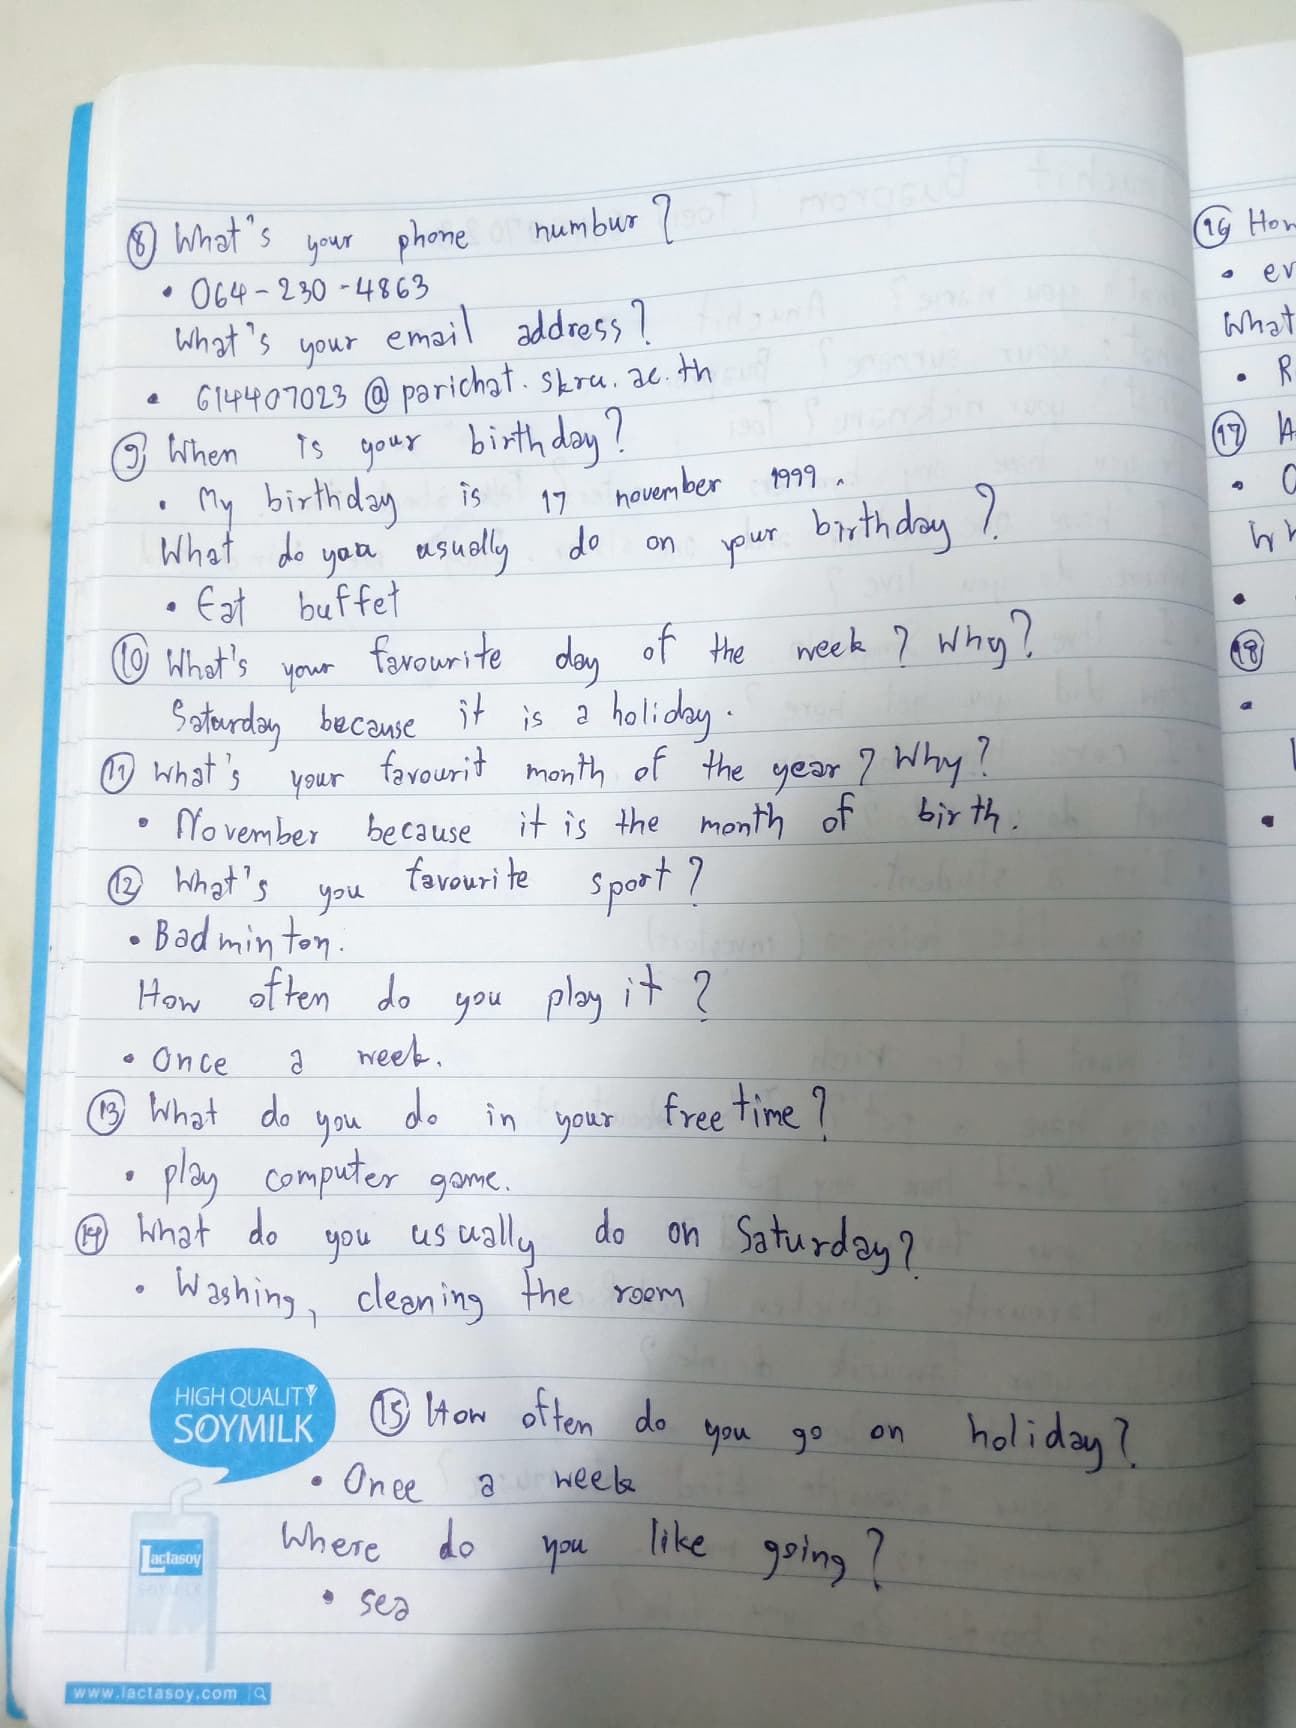 ⑧ What's your phone numbur?
• 064-230-4863
What's your email address?
• 614407023@parichat.skru.ac.th
⑨ When is your birthday?
• My birthday is 17 november 1999.
What do you usually do on your birthday?
• Eat buffet
⑩ What's your favourite day of the week? Why?
Saturday because it is a holiday.
⑪ What's your favourit month of the year? Why?
• November because it is the month of birth.
⑫ What's you favourite sport?
• Badminton.
How often do you play it?
• Once a week.
⑬ What do you do in your free time?
• play computer game.
⑭ What do you usually do on Saturday?
• Washing, cleaning the room
HIGH QUALITY
SOYMILK
⑮ How often do you go on holiday?
• Once a week
Where do you like going?
• sea
Lactasoy
www.lactasoy.com
⑯ How
• ev
What
• R
⑰
⑱